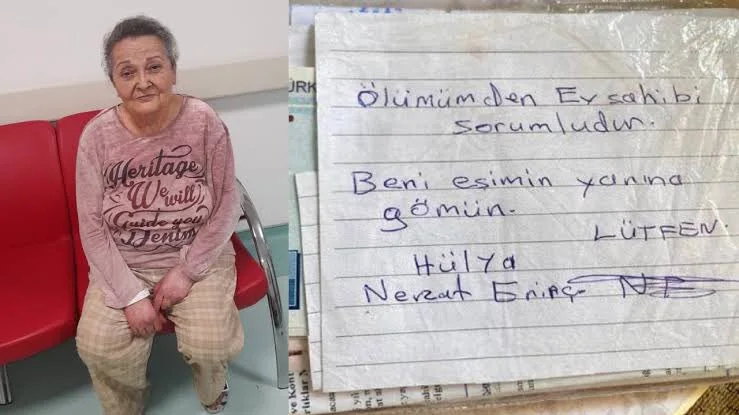 Heritage
We will
Guide you
Denim
ÜRK
Ölümümden Ev sahibi
sorumludur.
Beni eşimin yanına
gömün.
LÜTFEN.
Hülya
Nevzat